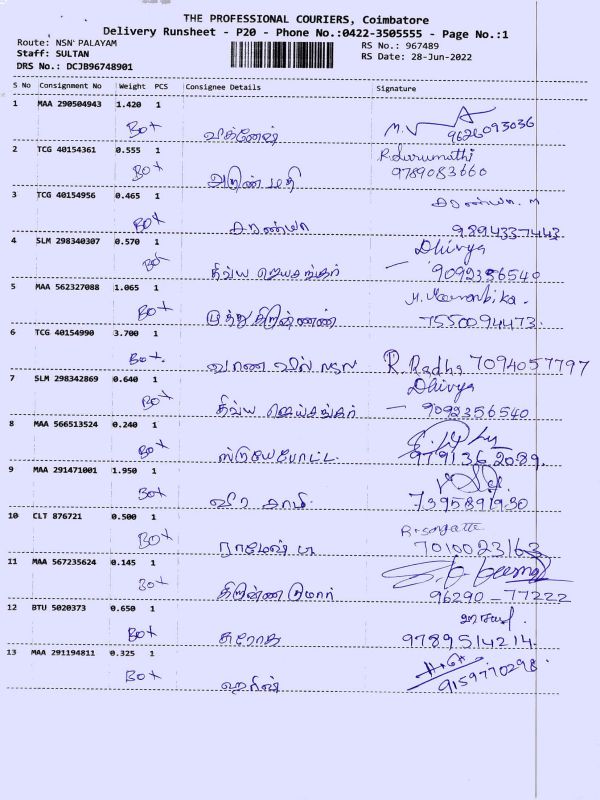 THE PROFESSIONAL COURIERS, Coimbatore
Delivery Runsheet - P20 - Phone No.:0422-3505555 - Page No.:1
Route: NSN PALAYAM RS No.: 967489
Staff: SULTAN RS Date: 28-Jun-2022
DRS No.: DCJB96748901
S No Consignment No Weight PCS Consignee Details Signature
1 MAA 290504943 1.420 1
Box விக்னேஷ் M.V 9626093036
2 TCG 40154361 0.555 1
Box அறிண் மதி 9789083660
3 TCG 40154956 0.465 1 சரண்யா. M
Box சரண்யா 9894337443
4 SLM 298340307 0.570 1 Dhivya
Box திவ்ய ஜெயசங்கர் — 9092356540
5 MAA 562327088 1.065 1
Box 7550094473.
6 TCG 40154990 3.700 1
Box. R. Radha 7094057797
7 SLM 298342869 0.640 1 Dhivya
Box திவ்ய ஜெய்சங்கர் — 9092356540
8 MAA 566513524 0.240 1
Box 9791362089.
9 MAA 291471001 1.950 1
Box வீர சாமி. 7395891930
10 CLT 876721 0.500 1
Box 7010023163
11 MAA 567235624 0.145 1
Box 96290-77222
12 BTU 5020373 0.650 1
Box சுரோத 9789514214.
13 MAA 291194811 0.325 1
Box ஹரிஷ் 9159770298.